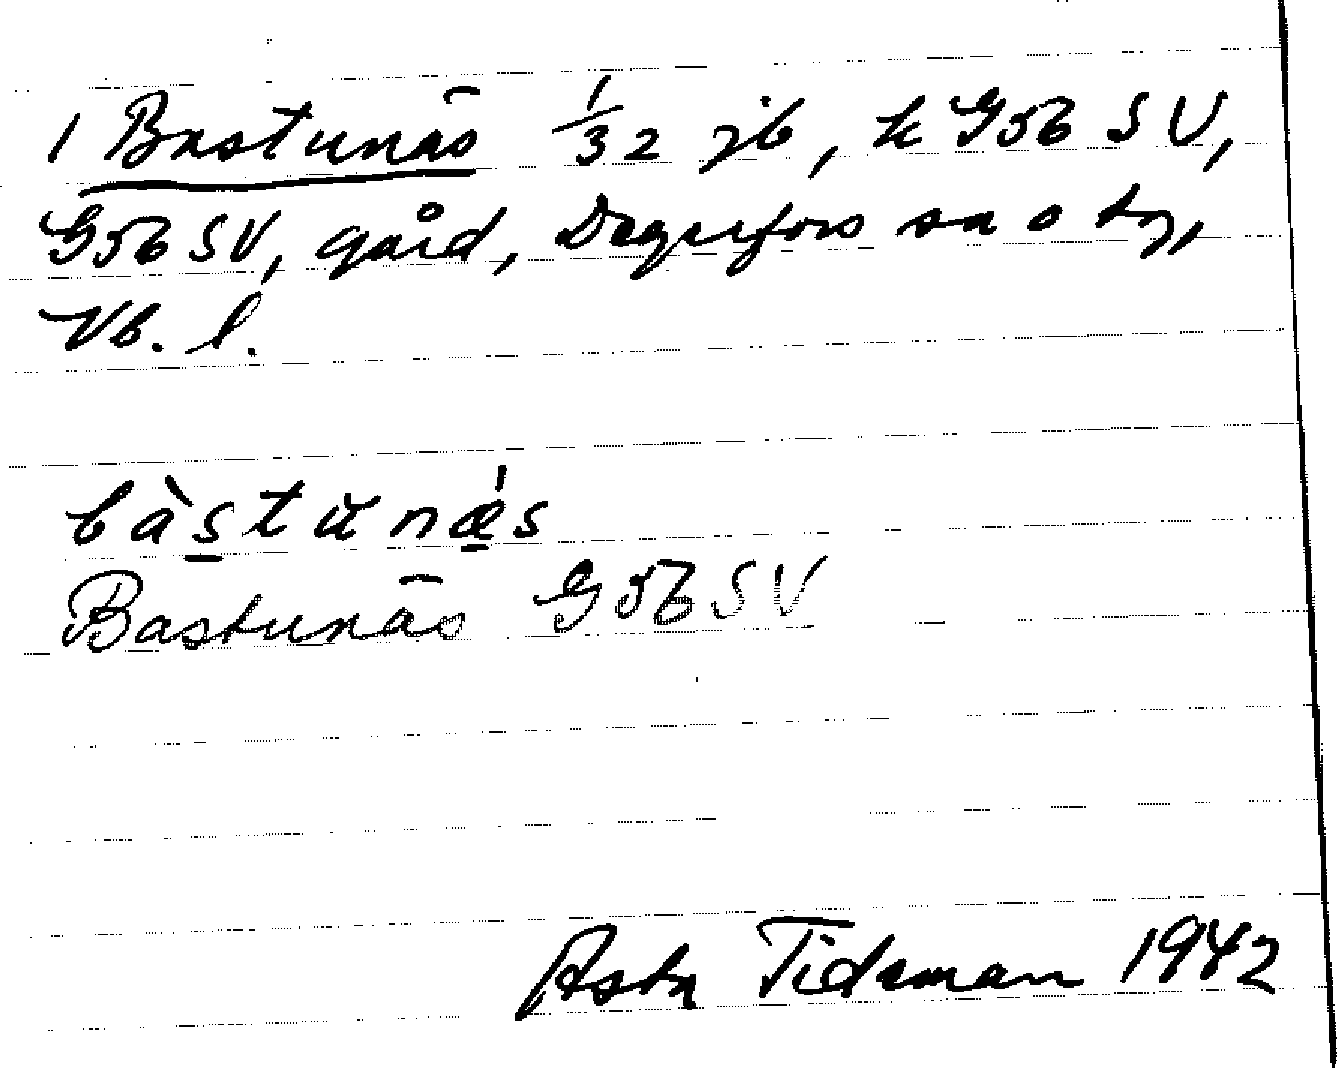 1 Bastunäs 1/32 jb, k G5b SV,
G5b SV, gård, Degerfors sn o tg,
Vb. l.
bàstunæ̀s
Bastunäs G5b SV
Asta Tideman 1942